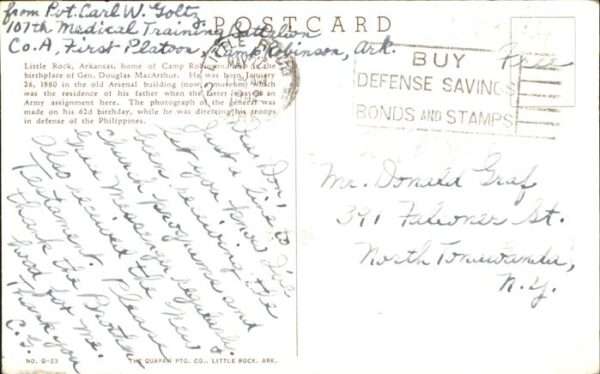 from Pvt. Carl W. Goltz
107th Medical Training Battalion
Co. A, First Platoon, Camp Robinson, Ark.
POSTCARD
Free
BUY
DEFENSE SAVINGS
BONDS AND STAMPS
Little Rock, Arkansas, home of Camp Robinson, is the
birthplace of Gen. Douglas MacArthur. He was born January
26, 1880 in the old Arsenal building (now a museum) which
was the residence of his father when the latter had an
Army assignment here. The photograph of the general was
made on his 62d birthday, while he was directing his troops
in defense of the Philippines.
Dear Don,
Just a line to
let you know I've
been receiving the
church programs and
Messenger regularly.
Also received the New
Testament. Please
thank the Brother-
hood for me.
Thank you
C. G.
Mr. Donald Graf
391 Falconer St.
North Tonawanda,
N.Y.
NO. G-53
THE QUAPAW PTG. CO., LITTLE ROCK, ARK.